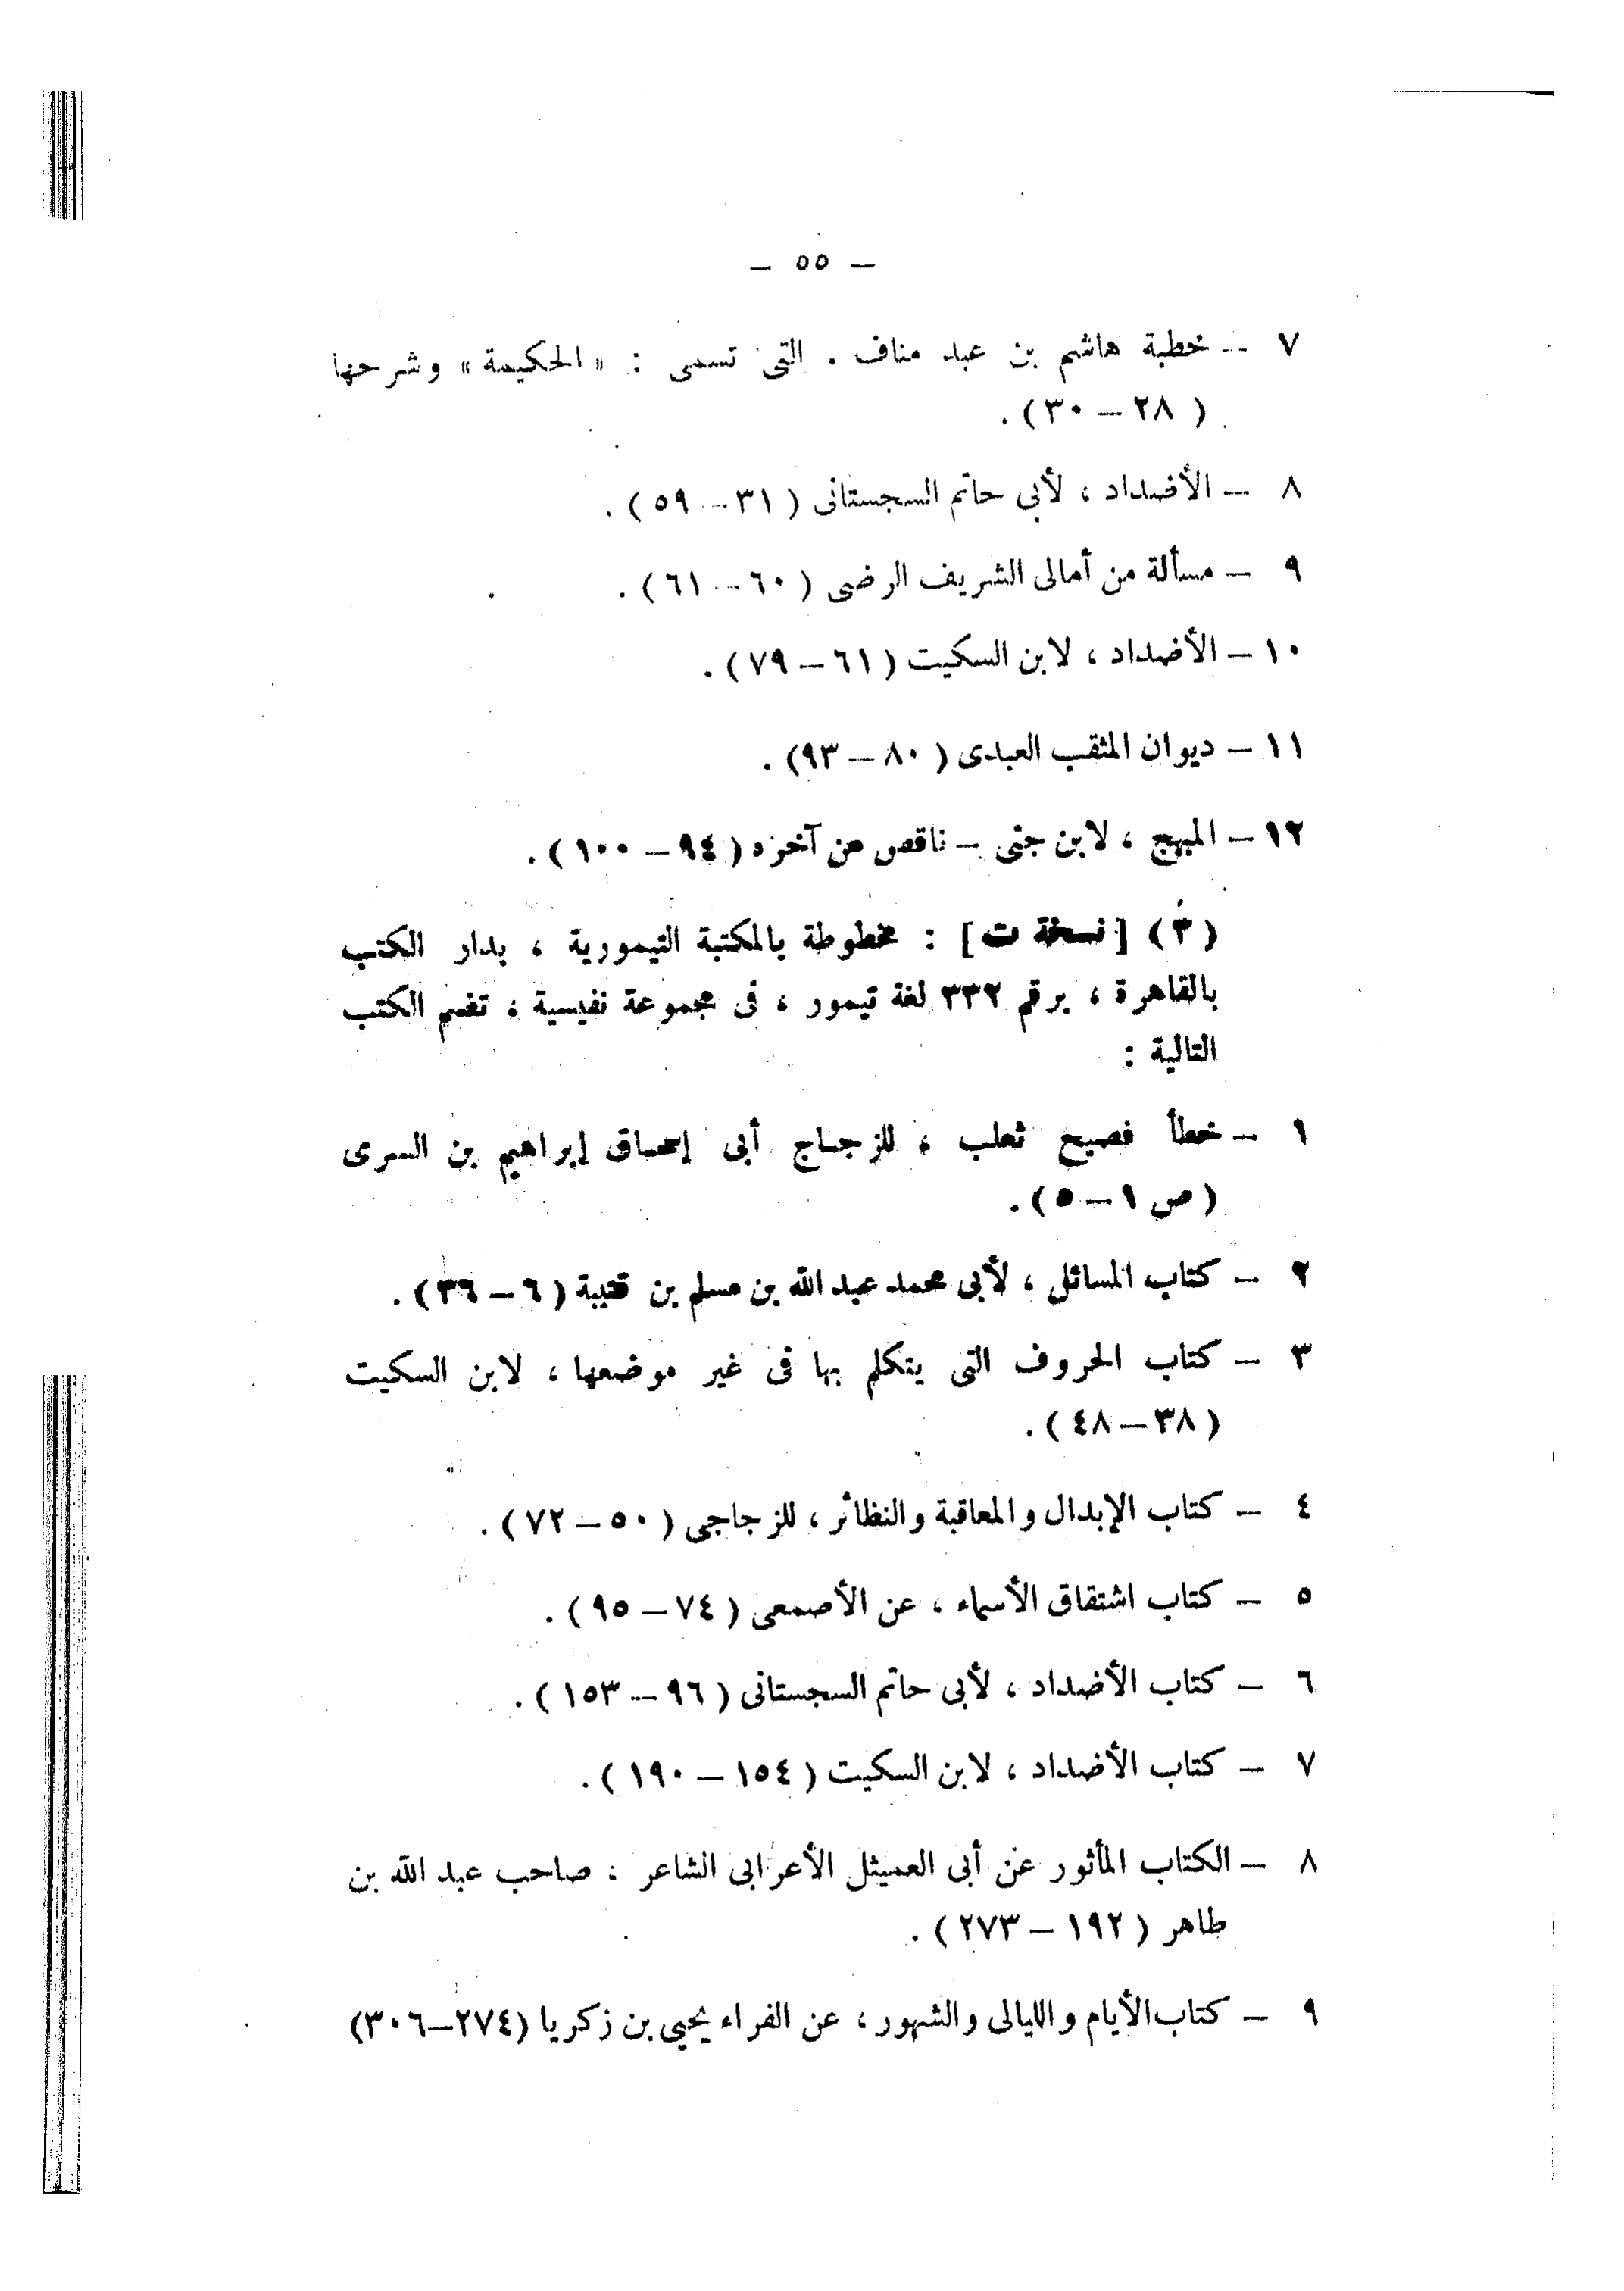 — ٥٥ —
٧ — خطبة هاشم بن عبد مناف . التى تسمى : « الحكيمة » وشرحها
( ٢٨ — ٣٠ ) .
٨ — الأضداد ، لأبى حاتم السجستانى ( ٣١ — ٥٩ ) .
٩ — مسألة من أمالى الشريف الرضى ( ٦٠ — ٦١ ) .
١٠ — الأضداد ، لابن السكيت ( ٦١ — ٧٩ ) .
١١ — ديوان المثقب العبدى ( ٨٠ — ٩٣ ) .
١٢ — المبهج ، لابن جنى — ناقص من آخره ( ٩٤ — ١٠٠ ) .
( ٣ ) [ نسخة ت ] : مخطوطة بالمكتبة التيمورية ، بدار الكتب
بالقاهرة ، برقم ٣٣٢ لغة تيمور ، فى مجموعة نفيسية ، تضم الكتب
التالية :
١ — خطأ فصيح ثعلب ، للزجاج أبى إسحاق إبراهيم بن السرى
( ص ١ — ٥ ) .
٢ — كتاب المسائل ، لأبى محمد عبد الله بن مسلم بن قتيبة ( ٦ — ٣٦ ) .
٣ — كتاب الحروف التى يتكلم بها فى غير موضعها ، لابن السكيت
( ٣٨ — ٤٨ ) .
٤ — كتاب الإبدال والمعاقبة والنظائر ، للزجاجى ( ٥٠ — ٧٢ ) .
٥ — كتاب اشتقاق الأسماء ، عن الأصمعى ( ٧٤ — ٩٥ ) .
٦ — كتاب الأضداد ، لأبى حاتم السجستانى ( ٩٦ — ١٥٣ ) .
٧ — كتاب الأضداد ، لابن السكيت ( ١٥٤ — ١٩٠ ) .
٨ — الكتاب المأثور عن أبى العميثل الأعرابى الشاعر ، صاحب عبد الله بن
طاهر ( ١٩٢ — ٢٧٣ ) .
٩ — كتاب الأيام والليالى والشهور ، عن الفراء يحيى بن زكريا (٢٧٤—٣٠٦)